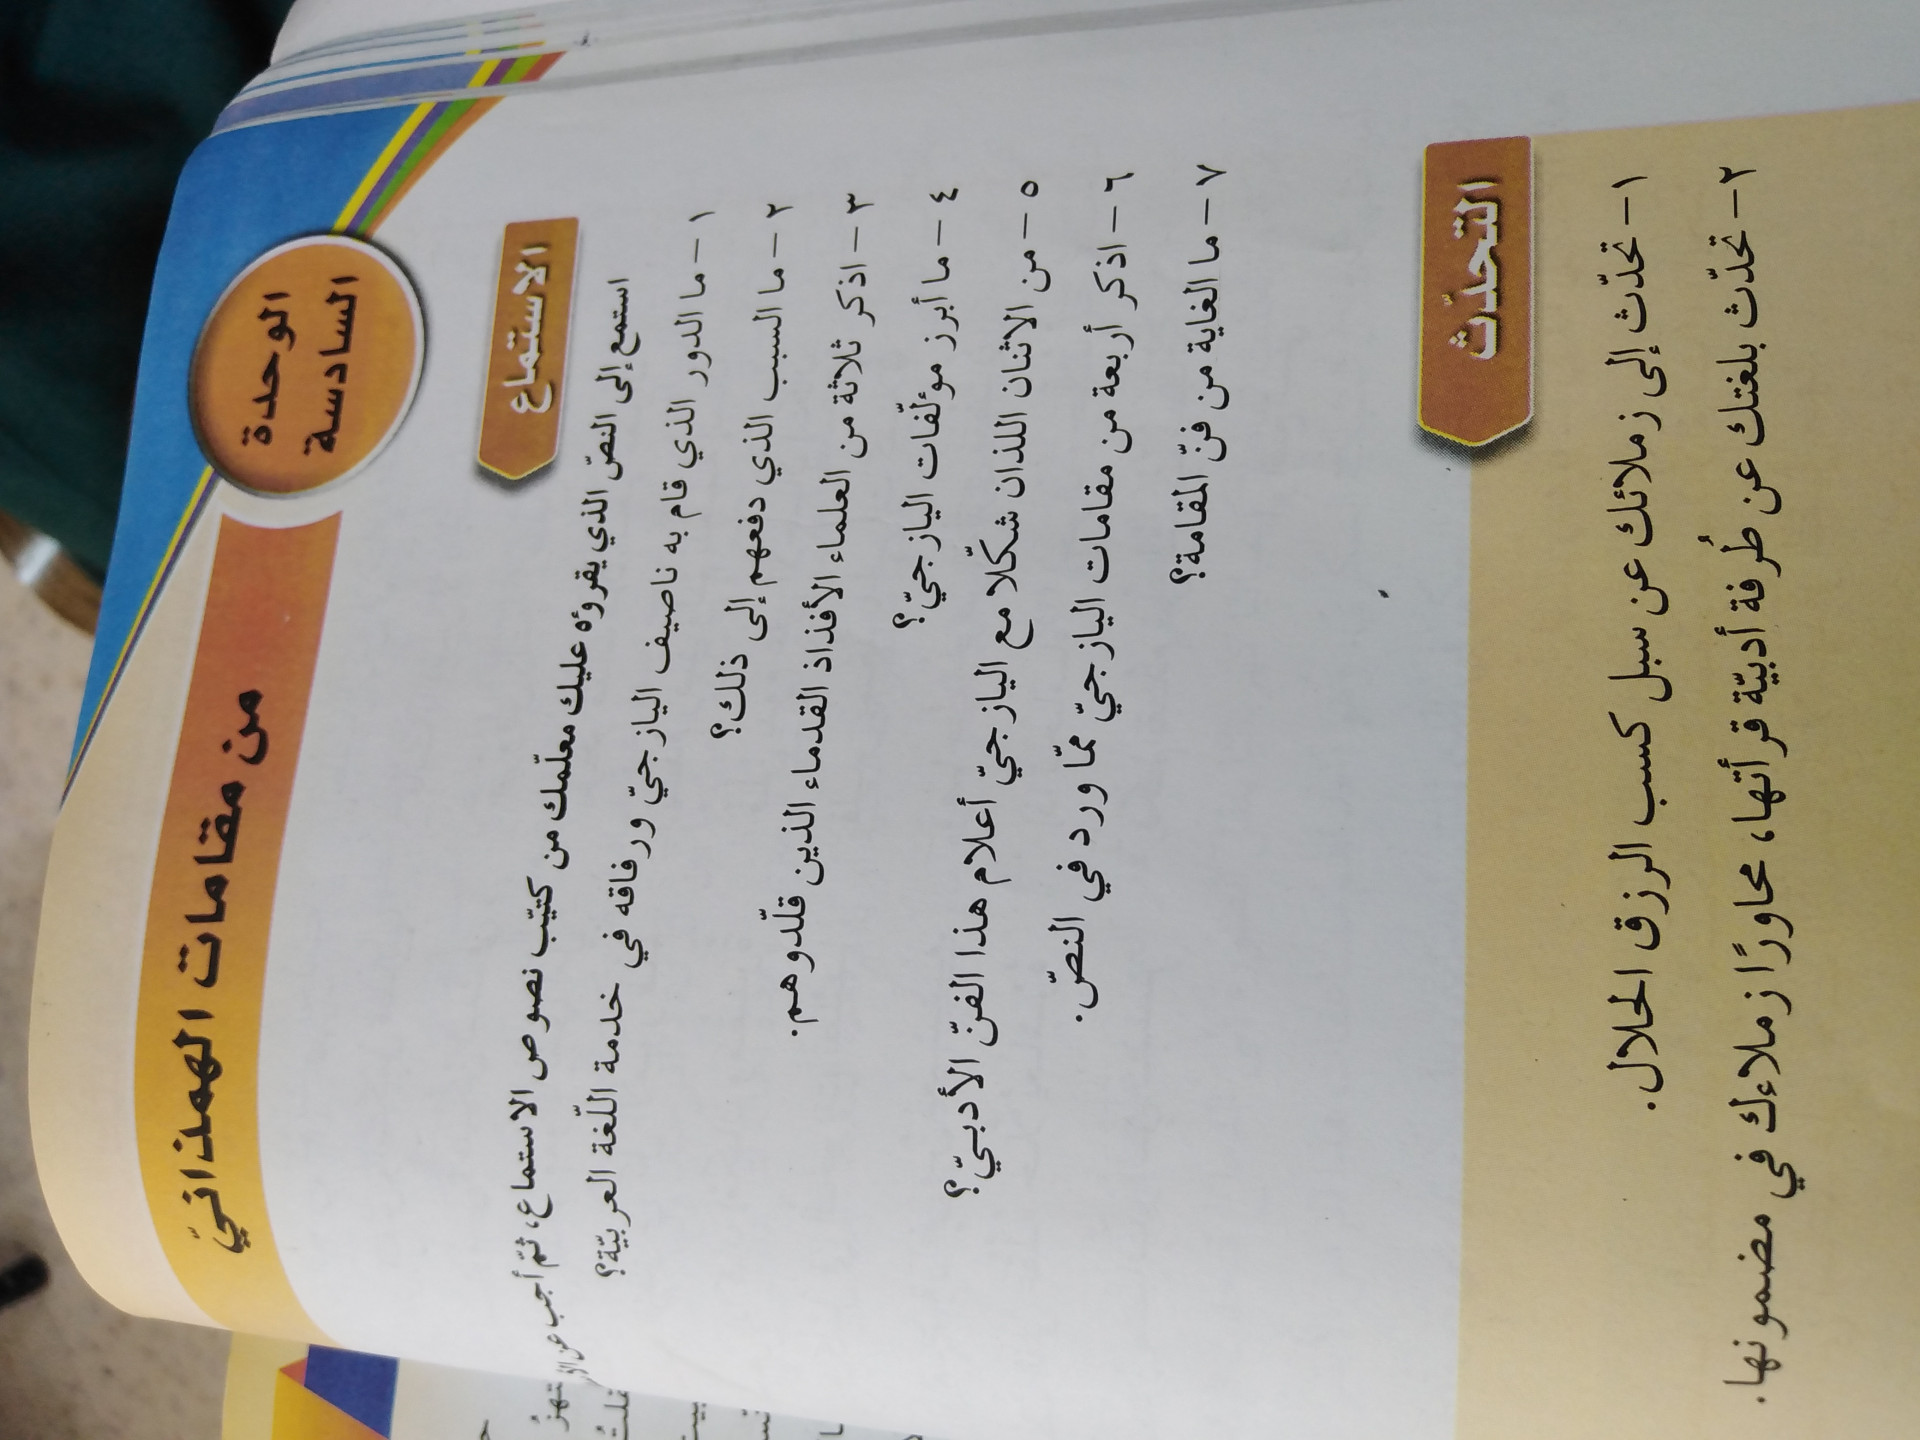 الوحدة
السادسة
من مقامات الهمذانيّ
الاستماع
استمع إلى النصّ الذي يقرؤه عليك معلّمك من كتيّب نصوص الاستماع، ثمّ أجب عن
١- ما الدور الذي قام به ناصيف اليازجيّ ورفاقه في خدمة اللّغة العربيّة؟
٢- ما السبب الذي دفعهم إلى ذلك؟
٣- اذكر ثلاثة من العلماء الأفذاذ القدماء الذين قلّدوهم.
٤- ما أبرز مؤلّفات اليازجيّ؟
٥- من الاثنان اللذان شكّلا مع اليازجيّ أعلام هذا الفنّ الأدبيّ؟
٦- اذكر أربعة من مقامات اليازجيّ ممّا ورد في النصّ.
٧- ما الغاية من فنّ المقامة؟
التحدّث
١- تحدّث إلى زملائك عن سبل كسب الرزق الحلال.
٢- تحدّث بلغتك عن طُرفة أدبيّة قرأتها، محاورًا زملاءك في مضمونها.